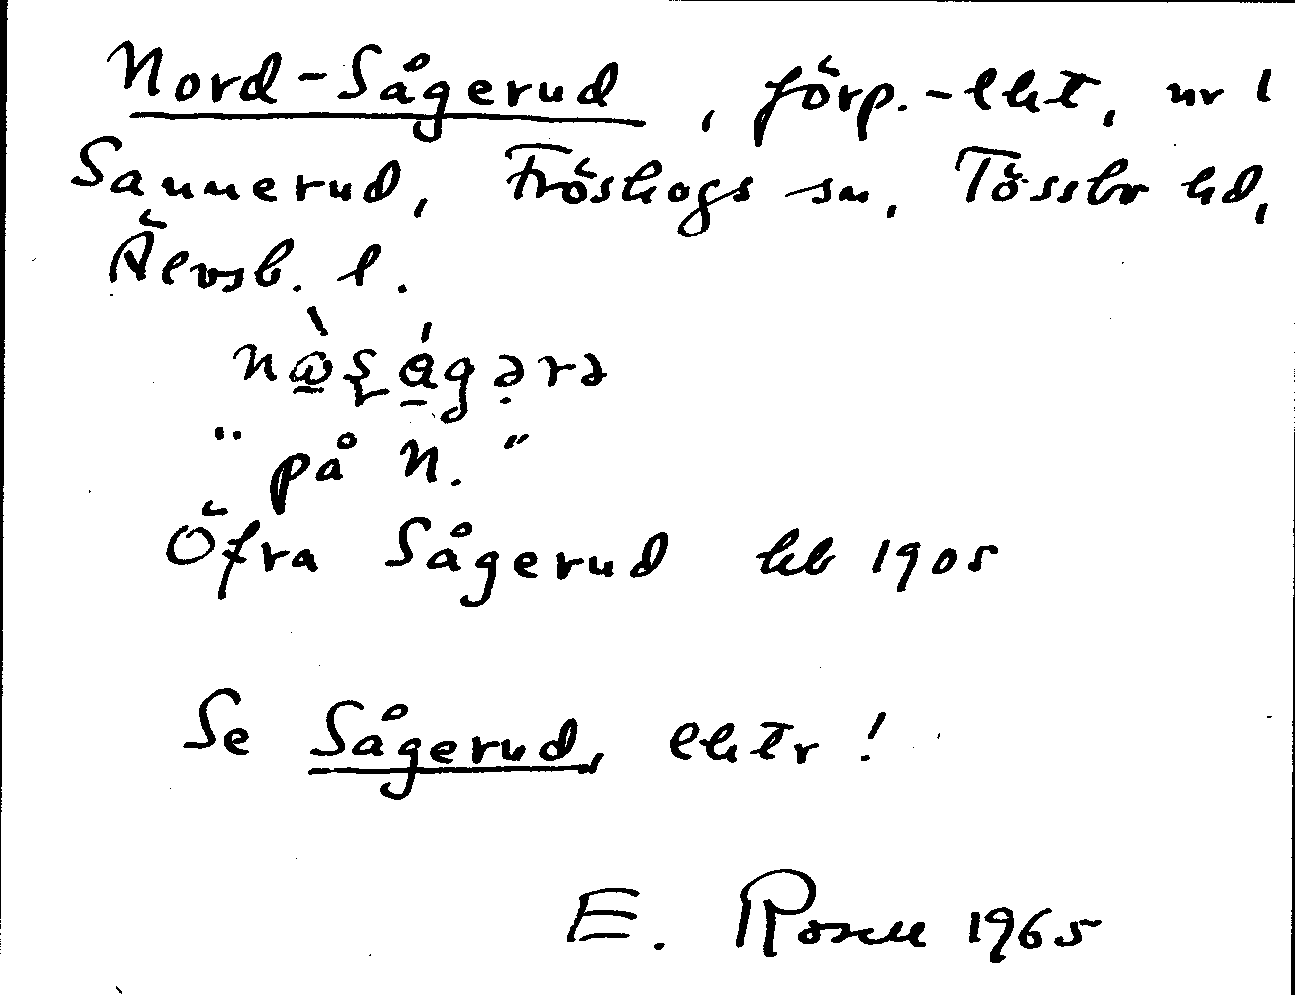 Nord-Sågerud, förp.-lht, nr 1
Sannerud, Fröskogs sn, Tössbo hd,
Älvsb. l.
"på N."
Öfra Sågerud kb 1905
Se Sågerud, ehtr!
E. Rosell 1965